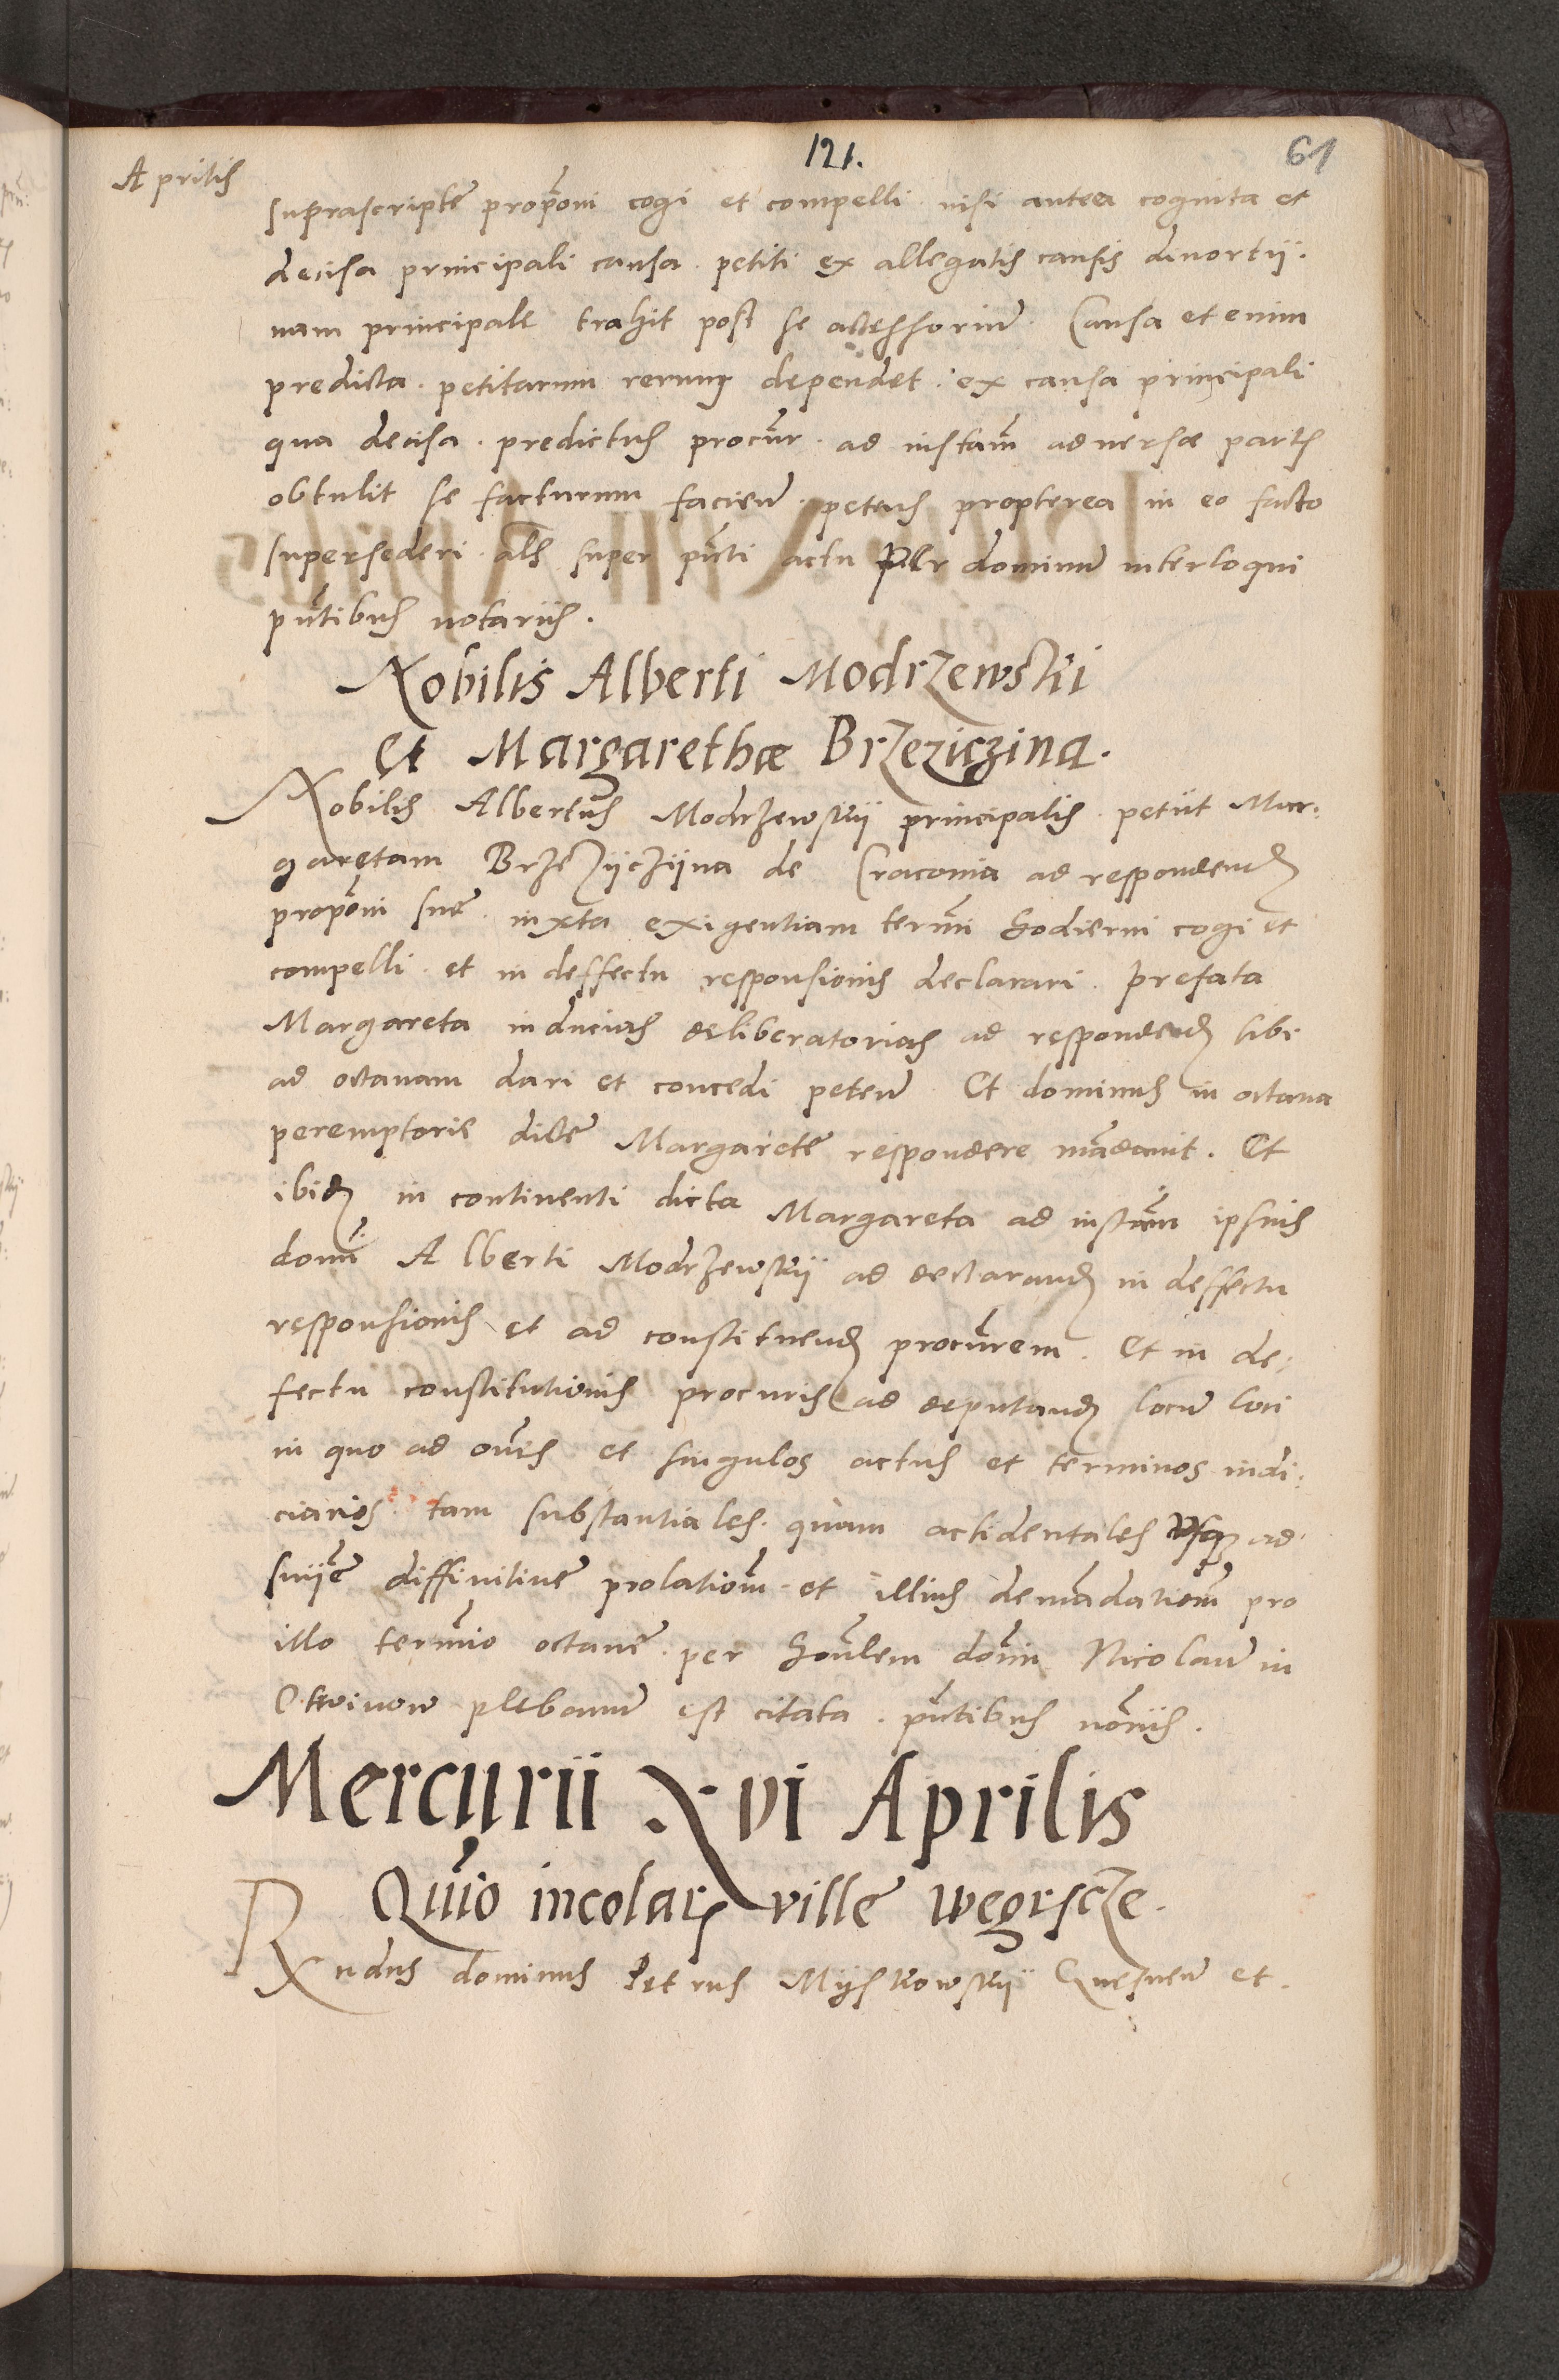 121.
61
Aprilis
suprascriptę propoñi cogi et compelli nisi antea cognita et
decisa principali causa. petiti ex allegatis causis divortii.
nam principale trahit post se accessoriū. Causa etenim
predicta. petitarum rerum dependet. ex causa principali
qua decisa. predictus procūr. ad instañ adversæ partis
obtulit se facturum faciend. petens propterea in eo facto
supersederi. als super pñti actu per dominū interloqui
pñtibus notariis.
Nobilis Alberti Modrzewski
Et Margarethæ Brzeziczina.
Nobilis Albertus Modrzewskij principalis. petiit Mar:
garetam Brzezijczijna de Cracovia ad respondend
propoñi suę. iuxta exigentiam termīni hodierni cogi et
compelli. et in deffectu responsionis declarari. Prefata
Margareta inducias deliberatorias ad respondend sibi
ad octavam dari et concedi peteñ. Et dominus in octava
peremptorie dictę Margaretę respondere mādavit. Et
ibidē in continenti dicta Margareta ad instañ ipsius
domī: Alberti Modrzewskij ad declarand in deffectu
responsionis et ad constituend procūrem. Et in de:
fectu constitutionis procuris ad deputand locū loci
in quo ad oñes et singulos actus et terminos iudi:
ciarios tam substantiales. quam accidentales usque ad
snīję diffinitivę prolatioñ. et illius demādatioñ pro
illo termīno octavę. per hoñlem doñm Nicolaū in
Otwinow plebanū est citata. pñtibus noriis.
Mercurii Xvi Aprilis
Quio incolarum villę Wegrscze.
Rxndus dominus Petrus Mijskowskij Gneznen et.